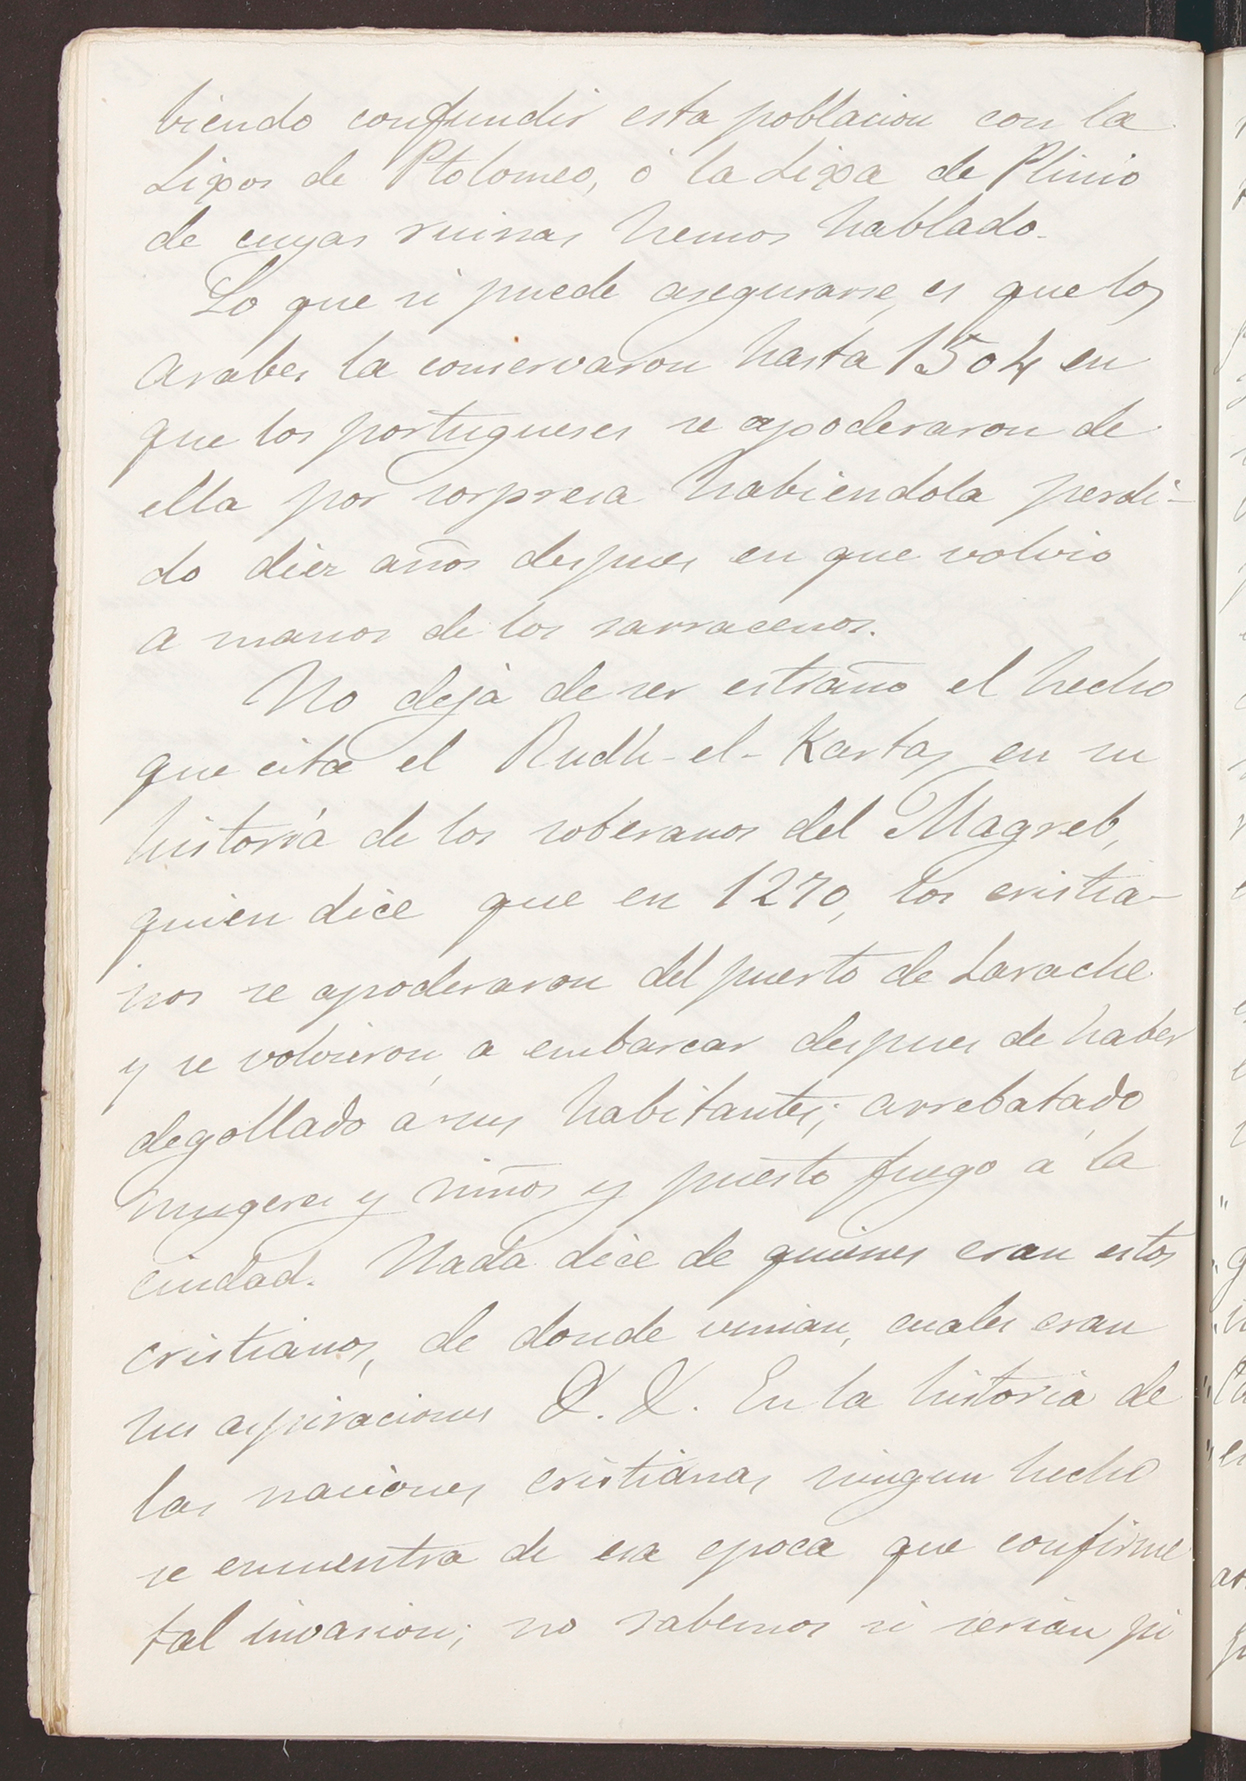 biendo confundir esta poblacion con la
Lixos de Ptolomeo, ó la Lixa de Plinio
de cuyas ruinas hemos hablado.
Lo que si puede asegurarse, es que los
arabes la conservaron hasta 1504 en
que los portugueses se apoderaron de
ella por sorpresa habiendola perdi-
do diez años despues en que volvio
a manos de los sarracenos.
No deja de ser estraño el hecho
que cita el Rudh-el-Kartas en su
historia de los soberanos del Magreb,
quien dice que en 1270, los cristia-
nos se apoderaron del puerto de Larache
y se volvieron a embarcar despues de haber
degollado á sus habitantes; arrebatado
mugeres y niños y puesto fuego á la
ciudad. Nada dice de quienes eran estos
cristianos, de donde venian, cuales eran
sus aspiraciones &. &. En la historia de
las naciones cristianas ningun hecho
se encuentra de esa epoca que confirme
tal invasion; no sabemos si serian pi